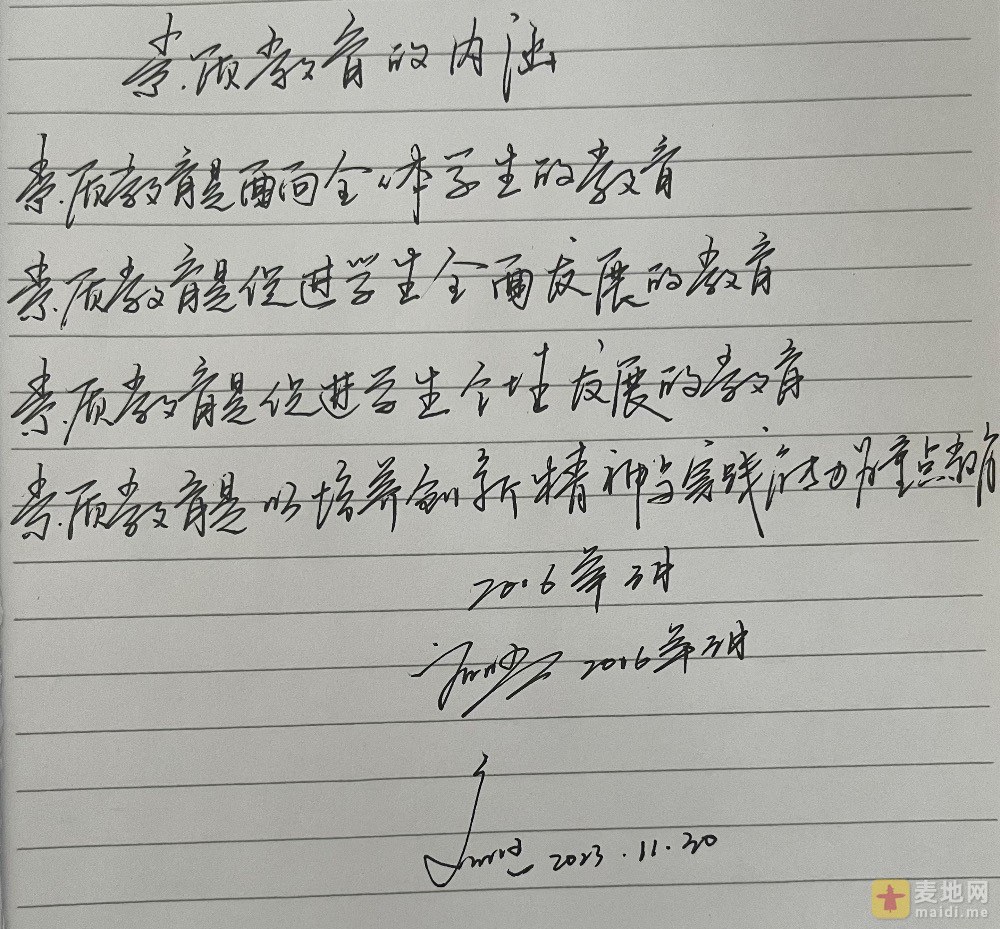 素质教育的内涵
素质教育是面向全体学生的教育
素质教育是促进学生全面发展的教育
素质教育是促进学生个性发展的教育
素质教育是以培养创新精神与实践能力为重点教育
2016年3月
2016年3月
2023.11.30
麦地网
maidi.me